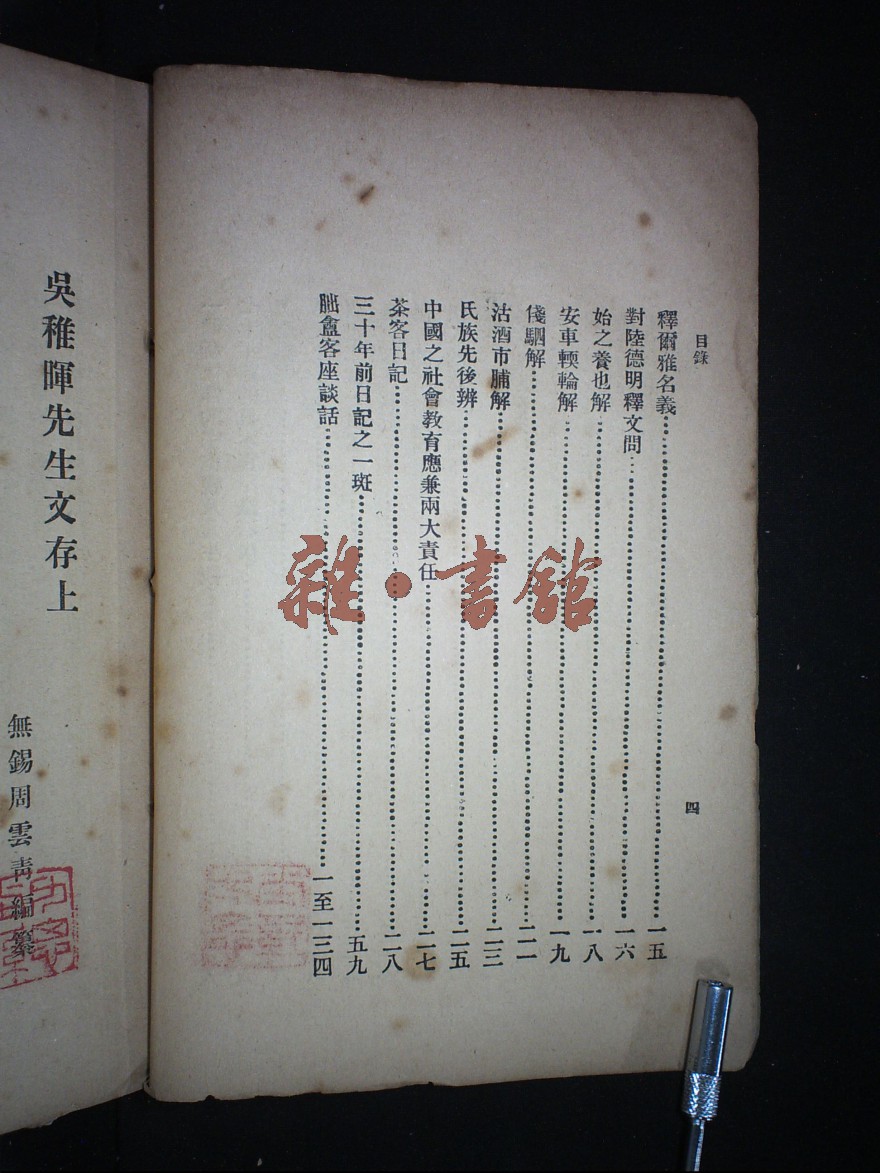 目錄
四
釋爾雅名義……一五
對陸德明釋文問……一六
始之養也解……一八
安車輭輪解……一九
俴駟解……二一
沽酒市脯解……二三
氏族先後辨……二五
中國之社會教育應兼兩大責任……二七
茶客日記……二八
三十年前日記之一斑……五九
朏盦客座談話……一至一三四
吳稚暉先生文存上
無錫周雲靑編纂
雜·書館